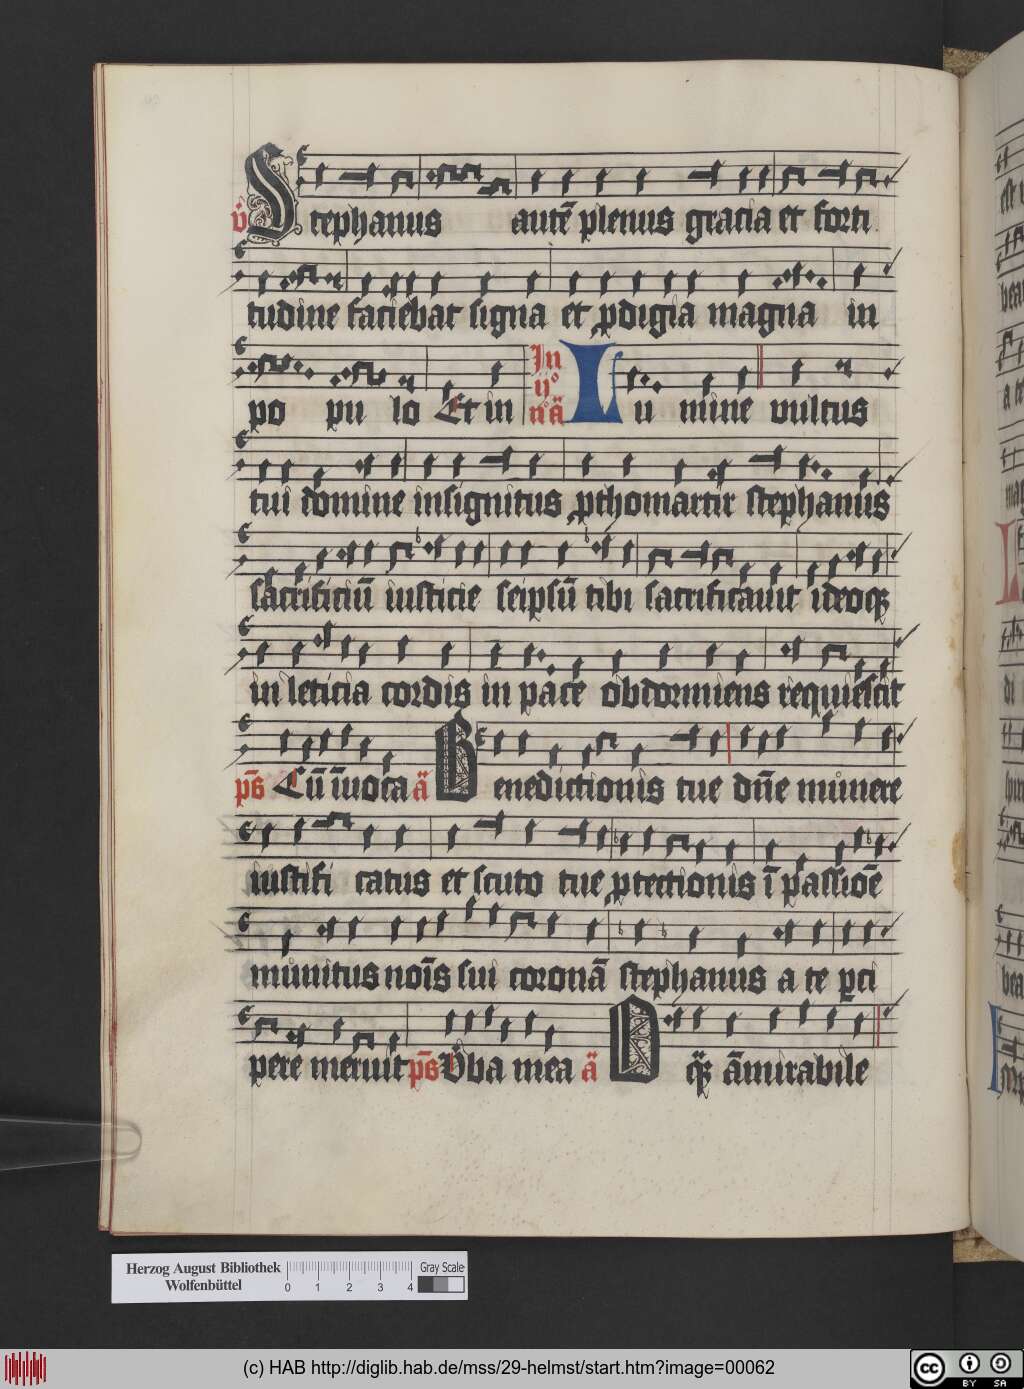 v̄ Stephanus autē plenus gracia et forti
tudine faciebat signa et ꝓdigia magna in
po pu lo Et in In ijº nº ā Lu mine vultus
tui domine insignitus ꝓthomartir stephanus
sacrificiū iusticie seipsū tibi sacrificauit ideoqꝫ
in leticia cordis in pace obdormiens requiescit
ps̄ Cū īuoca ā Benedictionis tue dn̄e munere
iustifi catus et scuto tue ꝓtectionis ī passiōe
munitus noīs sui coronā stephanus a te ꝑci
pere meruit ps̄ V̄ba mea ā O qꝫ ām̄irabile
Herzog August Bibliothek
Wolfenbüttel
0 1 2 3 4
Gray Scale
(c) HAB http://diglib.hab.de/mss/29-helmst/start.htm?image=00062
cc BY SA